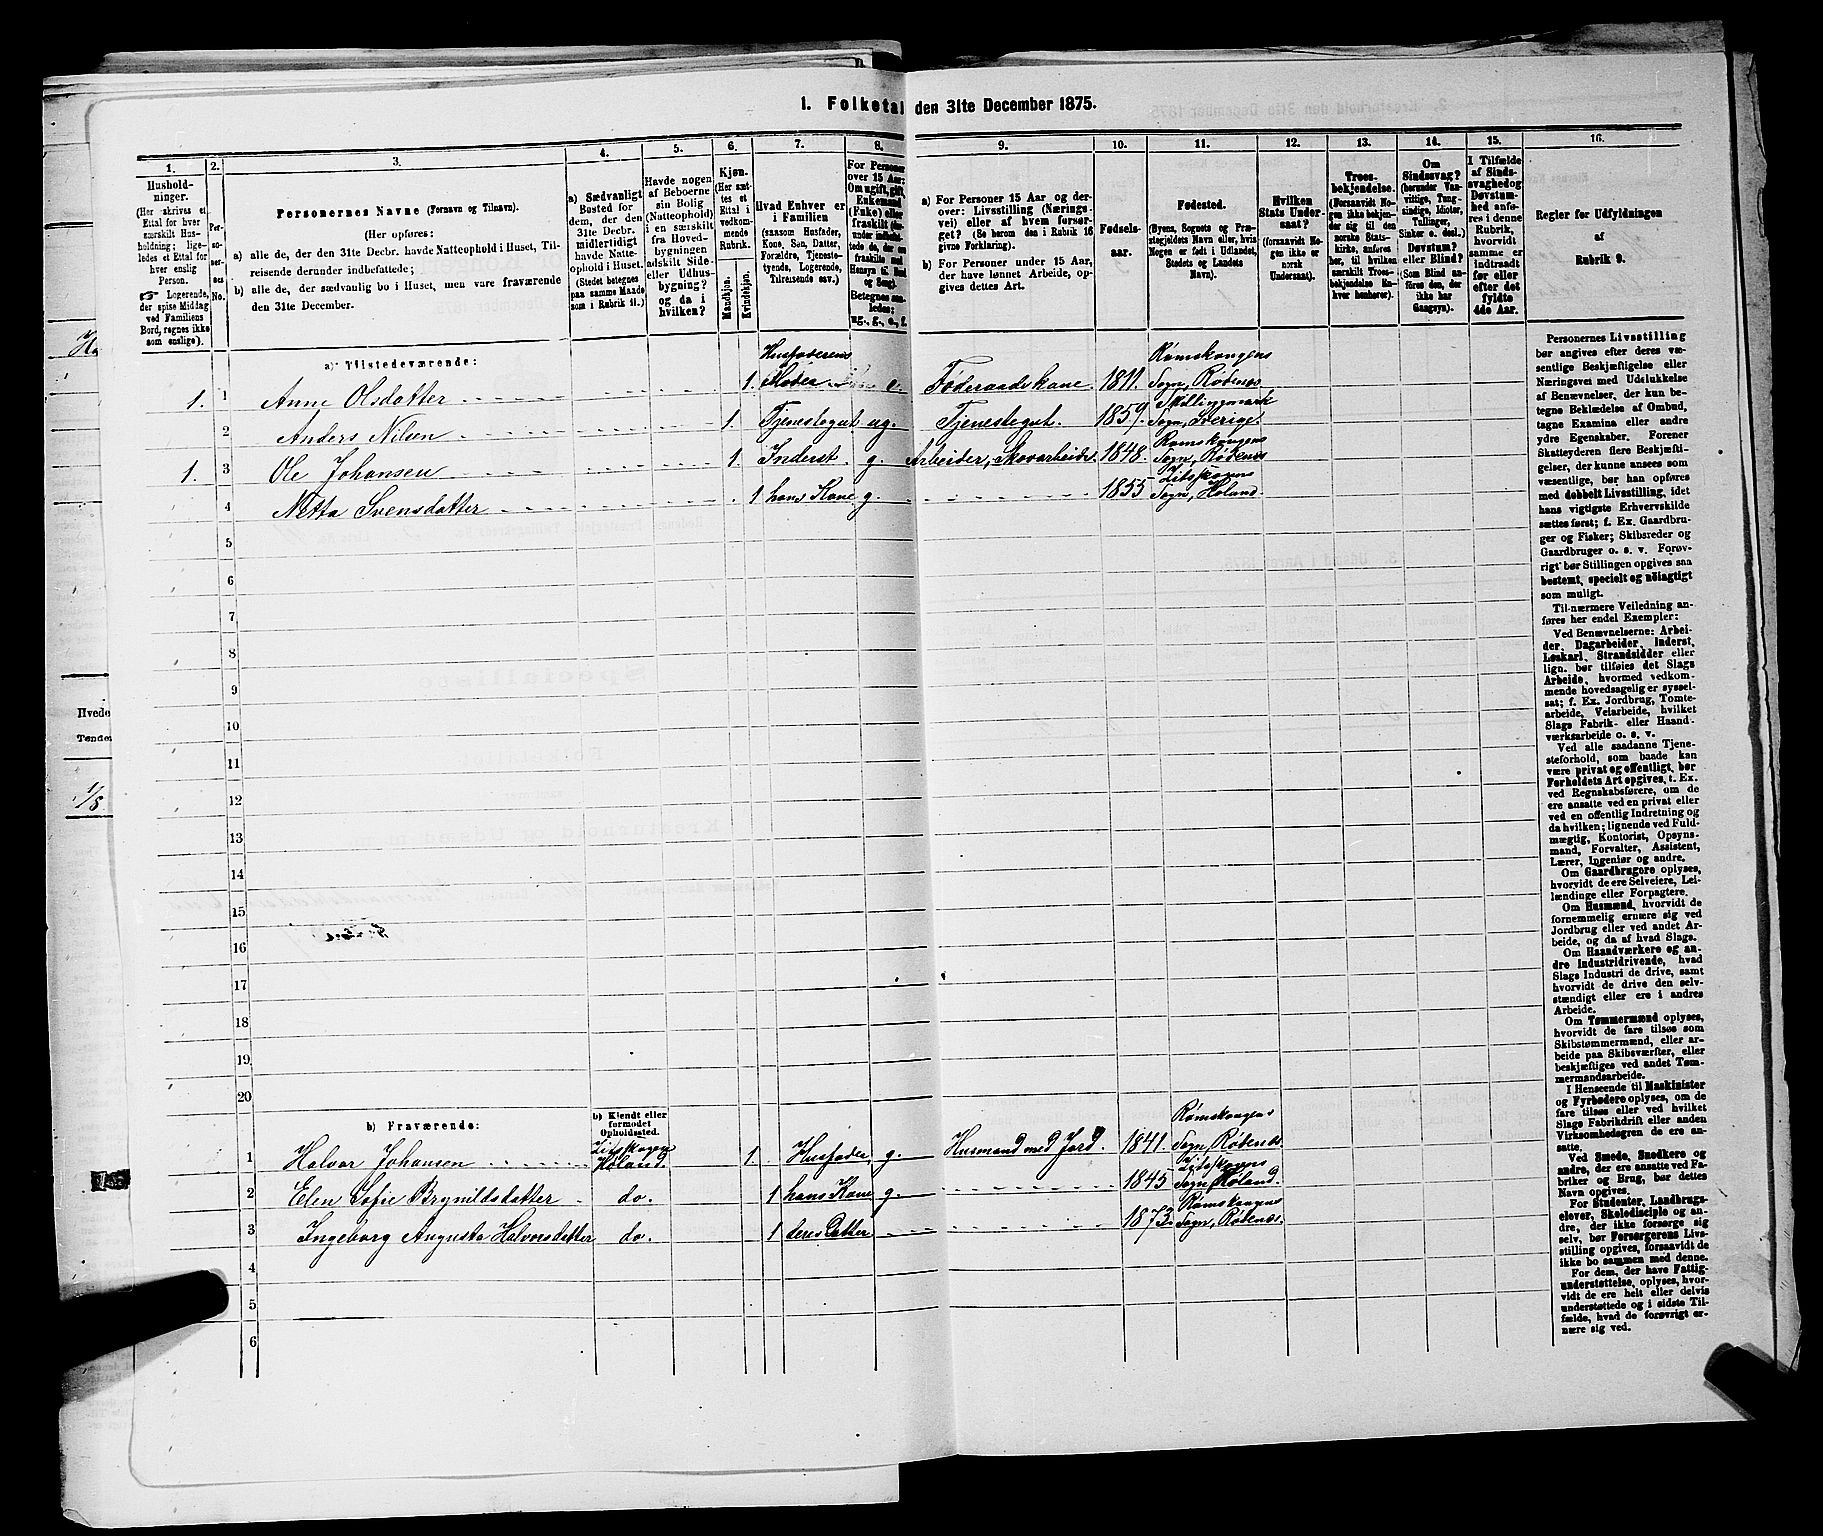 1. Folketal den 31te December 1875.
1.
2.
3.
4.
5.
6.
7.
8.
9.
10.
11.
12.
13.
14.
15.
16.
Hushold-
ninger.
(Her skrives et
Ettal for hver
særskilt Hus-
holdning; lige-
ledes et Ettal for
hver enslig
Person.
☞ Logerende,
der spise Middag
ved Familiens
Bord, regnes ikke
som enslige).
Per-
so-
ner-
nes
No.
Personernes Navne (Fornavn og Tilnavn).
(Her opføres:
a) alle de, der den 31te Decbr. havde Natteophold i Huset, Til-
reisende derunder indbefattede;
b) alle de, der sædvanlig bo i Huset, men vare fraværende
den 31te December.
a) Sædvanligt
Bosted for
dem, der den
31te Decbr.
midlertidigt
havde Natte-
ophold i Huset.
(Stedet betegnes
paa samme Maade
som i Rubrik 11.)
Havde nogen
af Beboerne
sin Bolig
(Natteophold)
i en særskilt
fra Hoved-
bygningen
adskilt Side-
eller Udhus-
bygning?
og da i
hvilken?
Kjøn.
(Her sæt-
tes et
Ettal i
vedkom-
mende
Rubrik.
Mandkjøn.
Kvindekjøn.
Hvad Enhver er
i Familien
(saasom Husfader,
Kone, Søn, Datter,
Forældre, Tjeneste-
tyende, Logerende,
Tilreisende osv.)
For Personer
over 15 Aar:
Om ugift, gift,
Enkemand
(Enke) eller
fraskilt
Betegnes saa-
ledes:
ug., g., e., f.
a) For Personer 15 Aar og der-
over: Livsstilling (Nærings-
vei) eller af hvem forsør-
get? (Se herom den i Rubrik 16
givne Forklaring).
b) For Personer under 15 Aar,
der have lønnet Arbeide, op-
gives dettes Art.
Fødsels-
aar.
Fødested.
(Byens, Sognets og Præ-
stegjeldets Navn eller, hvis
Nogen er født i Udlandet,
Stedets og Landets
Navn).
Hvilken
Stats Under-
saat?
(forsaavidt No-
gen ikke er
norsk
Undersaat).
Troes-
bekjendelse.
(Forsaavidt No-
gen ikke bekjen-
der sig til den
norske Stats-
kirke, anføres
her, til hvilken
særskilt Troes-
bekjendelse En-
hver henhører).
Om
Sindssvag?
(herunder Van-
vittige, Tung-
sindige, Idioter,
Tullinger,
Sinker o. desl.)
Døvstum?
eller Blind?
(Som Blind an-
føres den, der
ikke har
Gangsyn).
I Tilfælde
af Sinds-
svaghed og
Døvstum-
hed anfø-
res i denne
Rubrik,
hvorvidt
samme er
indtraadt
før eller
efter det
fyldte
4de Aar.
Regler for Udfyldningen
af
Rubrik 9.
a) Tilstedeværende:
1. 1 Anne Olsdatter 1. Husfaderens Moder e. Føderaadskone. 1811. Rømskougens Sogn, Rødenæs
2 Anders Nilsen 1. Tjenestegut ug. Tjenestegut. 1859. Skillingmark Sogn, Sverige.
1. 3 Ole Johansen 1. Inderst g. Arbeider, Skovarbeide. 1848. Rømskougens Sogn, Rødenæs
4 Netta Svensdatter 1 hans Kone g. 1855 Sogn, Høland.
5
6
7
8
9
10
11
12
13
14
15
16
17
18
19
20
b) Fraværende:
b) Kjendt eller
formodet
Opholdssted.
1 Halvor Johansen Høland. 1. Husfader g. Husmand med Jord. 1841. Rømskougens Sogn, Rødenæs.
2 Elen Sofie Brynildsdatter do. 1 hans Kone g. 1845 Sogn Høland.
3 Ingeborg Augusta Halvorsdatter do. 1 deres Datter 1873. Rømskougens Sogn, Rødenæs.
4
5
6
Personernes Livsstilling
bør angives efter deres væ-
sentlige Beskjæftigelse eller
Næringsvei med Udelukkelse
af Benævnelser, der kun be-
tegne Beklædelse af Ombud,
tagne Examina eller andre
ydre Egenskaber. Forener
Skatteyderen flere Beskjæfti-
gelser, der kunne ansees som
væsentlige, bør han opføres
med dobbelt Livsstilling, idet
hans vigtigste Erhvervskilde
sættes først; f. Ex. Gaardbru-
ger og Fisker; Skibsreder og
Gaardbruger o. s. v. Forøv-
rigt bør Stillingen opgives saa
bestemt, specielt og nöiagtigt
som muligt.
Til nærmere Veiledning an-
føres her endel Exempler:
Ved Benævnelserne: Arbei-
der, Dagarbeider, Inderst,
Løskarl, Strandsidder eller
lign. bør tilføies det Slags
Arbeide, hvormed vedkom-
mende hovedsagelig er syssel-
sat; f. Ex. Jordbrug, Tomte-
arbeide, Veiarbeide, hvilket
Slags Fabrik- eller Haand-
værksarbeide o. s. v.
Ved alle saadanne Tjene-
steforhold, som baade kan
være privat og offentligt, bør
Forholdets Art opgives, t. Ex.
ved Regnskabsførere, om de
ere ansatte ved en privat eller
ved en offentlig Indretning og
da hvilken; lignende ved Fuld-
mægtig, Kontorist, Opsyns-
mand, Forvalter, Assistent,
Lærer, Ingeniør og andre.
Om Gaardbrugere oplyses,
hvorvidt de ere Selveiere, Lei-
lændinge eller Forpagtere.
Om Husmænd, hvorvidt de
fornemmelig ernære sig ved
Jordbrug eller ved andet Ar-
beide, og da af hvad Slags.
Om Haandværkere og an-
dre Industridrivende, hvad
Slags Industri de drive, samt
hvorvidt de drive den selv-
stændigt eller ere i andres
Arbeide.
Om Tømmermænd oplyses,
hvorvidt de fare tilsøs som
Skibstømmermænd, eller ar-
beide paa Skibsværfter, eller
beskjæftiges ved andet Tøm-
mermandsarbeide.
I Henseende til Maskinister
og Fyrbødere oplyses, om de
fare tilsøs eller ved hvilket
Slags Fabrikdrift eller anden
Virksomhedsgren de ere an-
satte.
Ved Smede, Snedkere og
andre, der ere ansatte ved Fa-
briker og Brug, bør dettes
Navn opgives.
For Studenter, Landbrugs-
elever, Skoledisciple og an-
dre, der ikke forsørge sig
selv, bør Forsørgerens Livs-
stilling opgives, forsaavidt de
ikke bo sammen med denne.
For dem, der have Fattig-
understøttelse, oplyses, hvor-
vidt de ere helt eller delvis
understøttede og i sidste Til-
fælde, hvad de forøvrigt er-
nære sig ved.
Hvede
Tønder
1/8